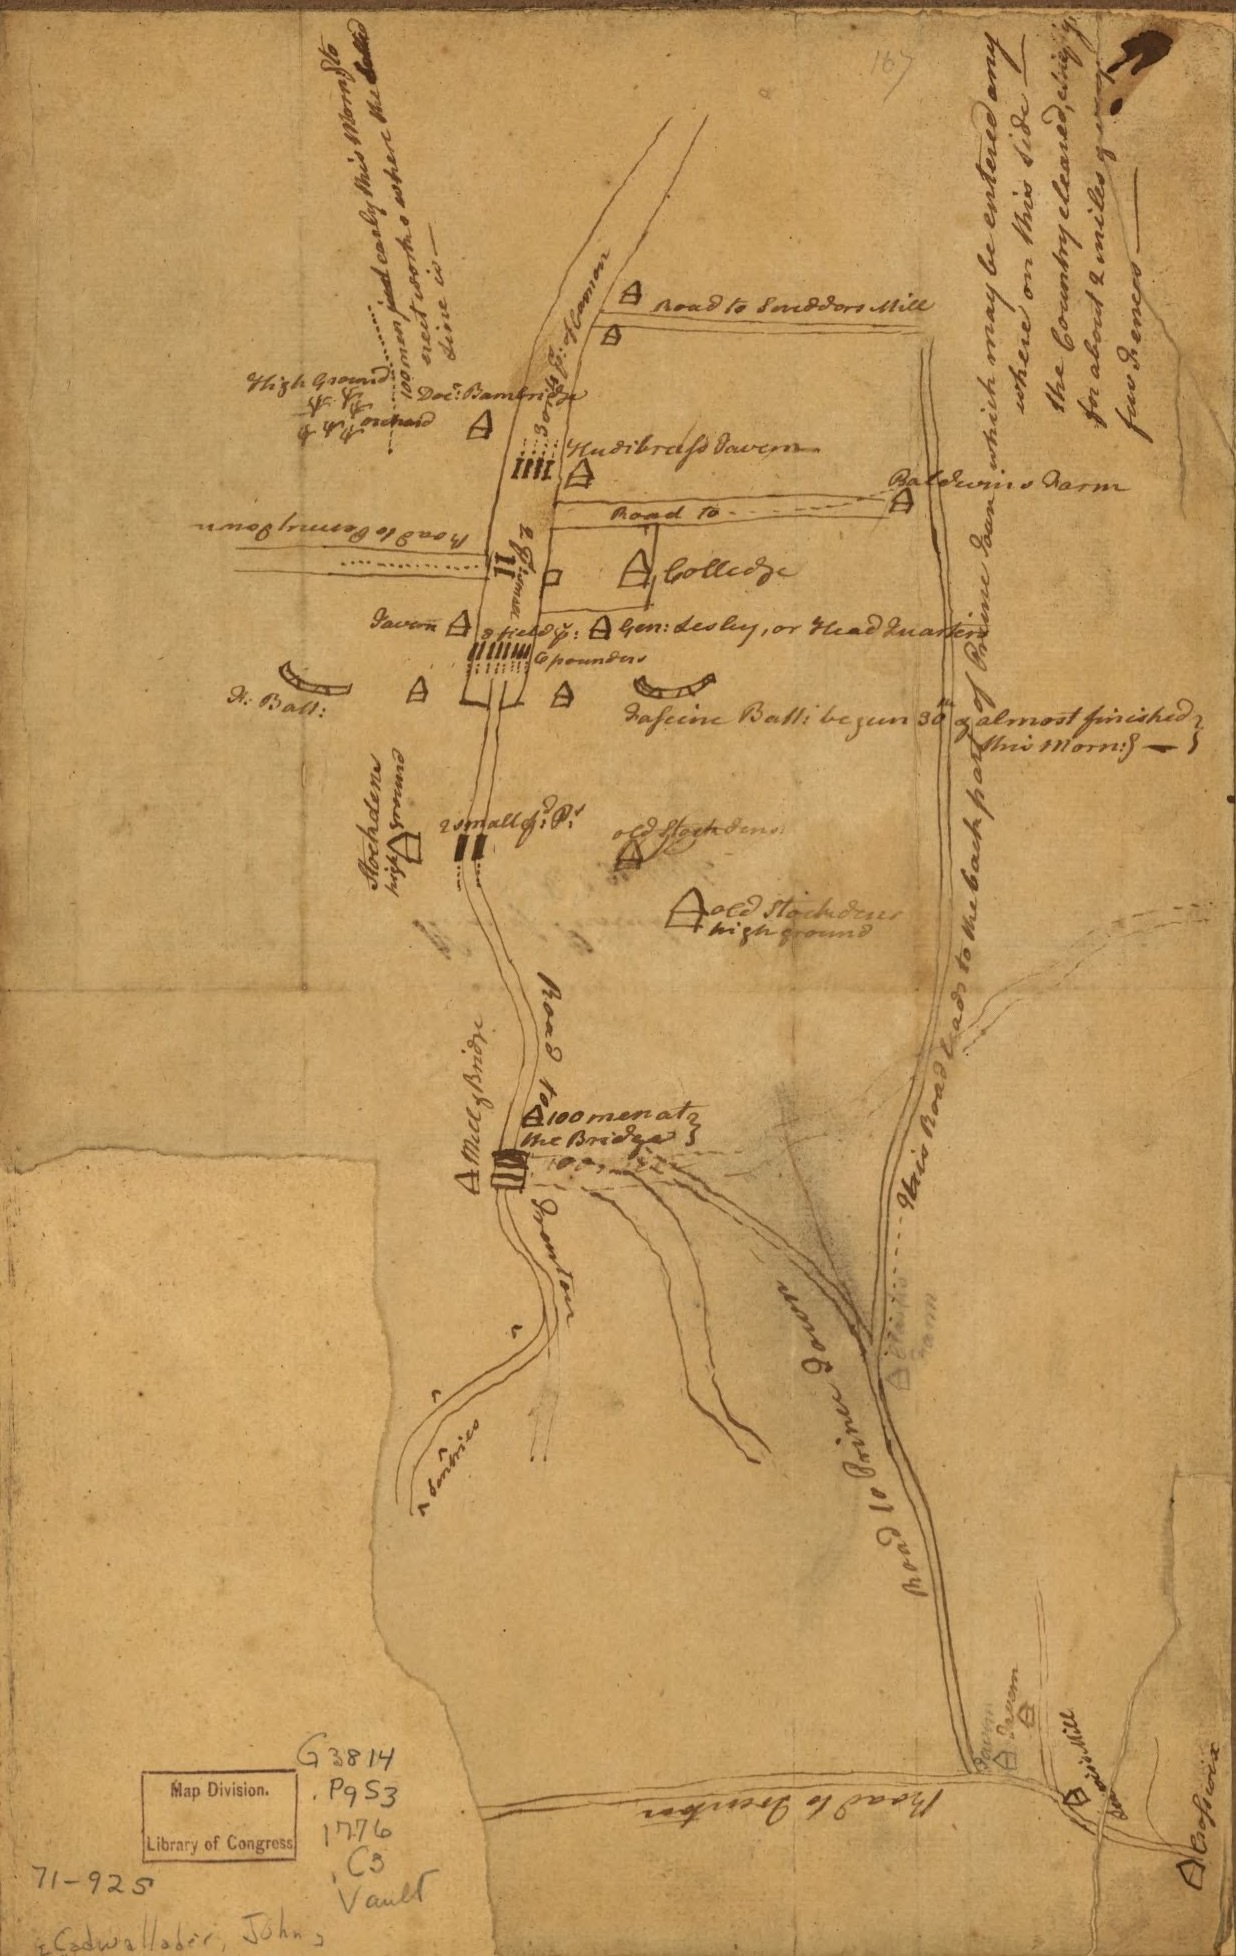 167
100 men early this Morn:g to
erect works where the dotted
line is —
30 or 40 p: of Cannon
Road to Scuddors Mill
High Ground
Orchard
Doc.r Bambridge
Hudibrass Tavern
Baldwins Farm
Road to
Road to Penny Town
Colledge
Tavern
8 field p:
6 pounders
Gen: Lesley, or Head Quarters
F: Batt:
Fascine Batt: begun 30th & almost finished
this Morn:g —
Stockdens
high ground
2 small f.d P.s
old Stockdens
old Stockdens
high ground
Mill & Bridge
Road to Trenton
100 men at
the Bridge
Sentries
This Road leads to the back part of Prince Town which may be entered any
where on this side —
the Country cleared, chiefly,
for about 2 miles
few Fences —
Farm
Road to Prince Town
Tavern
Tavern
Mill
Road to Trenton
Crosswix
Map Division.
Library of Congress
G3814
.P9S3
1776
.C3
Vault
71-925
Cadwallader, John,